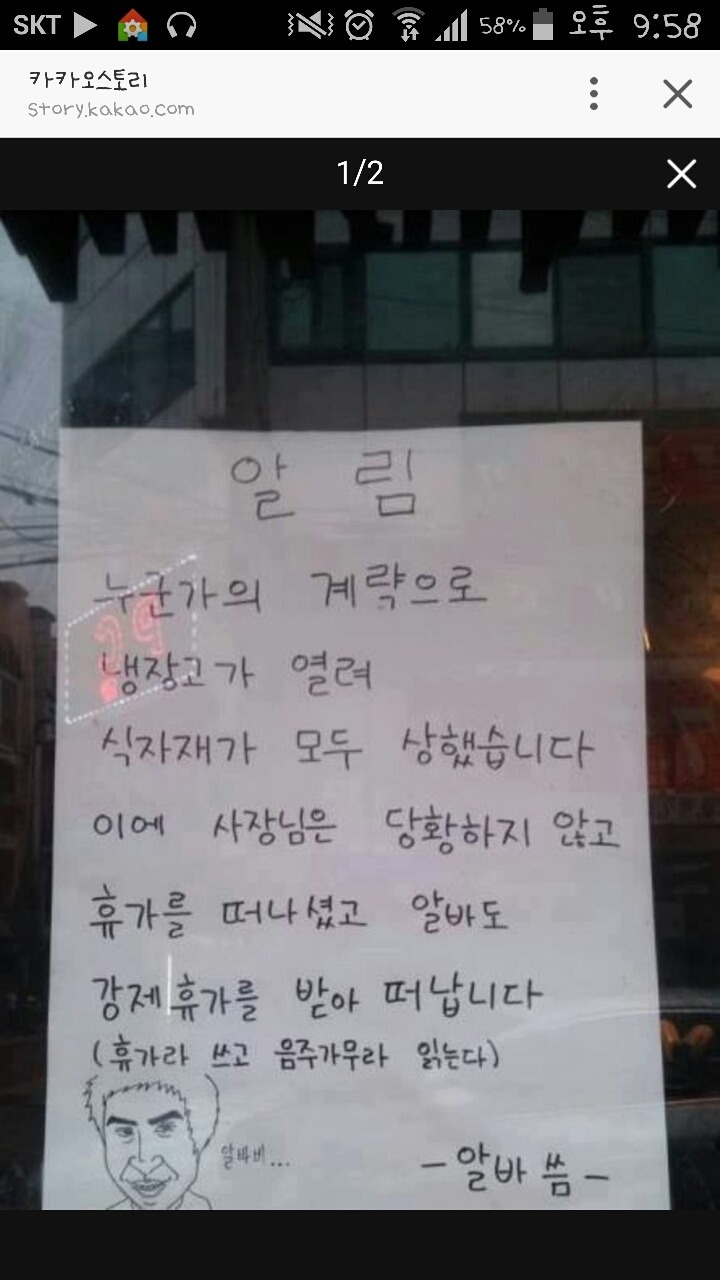 SKT 58% 오후 9:58
카카오스토리
Story.kakao.com
1/2
알 림
누군가의 계략으로
냉장고가 열려
식자재가 모두 상했습니다
이에 사장님은 당황하지 않고
휴가를 떠나셨고 알바도
강제휴가를 받아 떠납니다
(휴가라 쓰고 음주가무라 읽는다)
알바비...
-알바 씀-